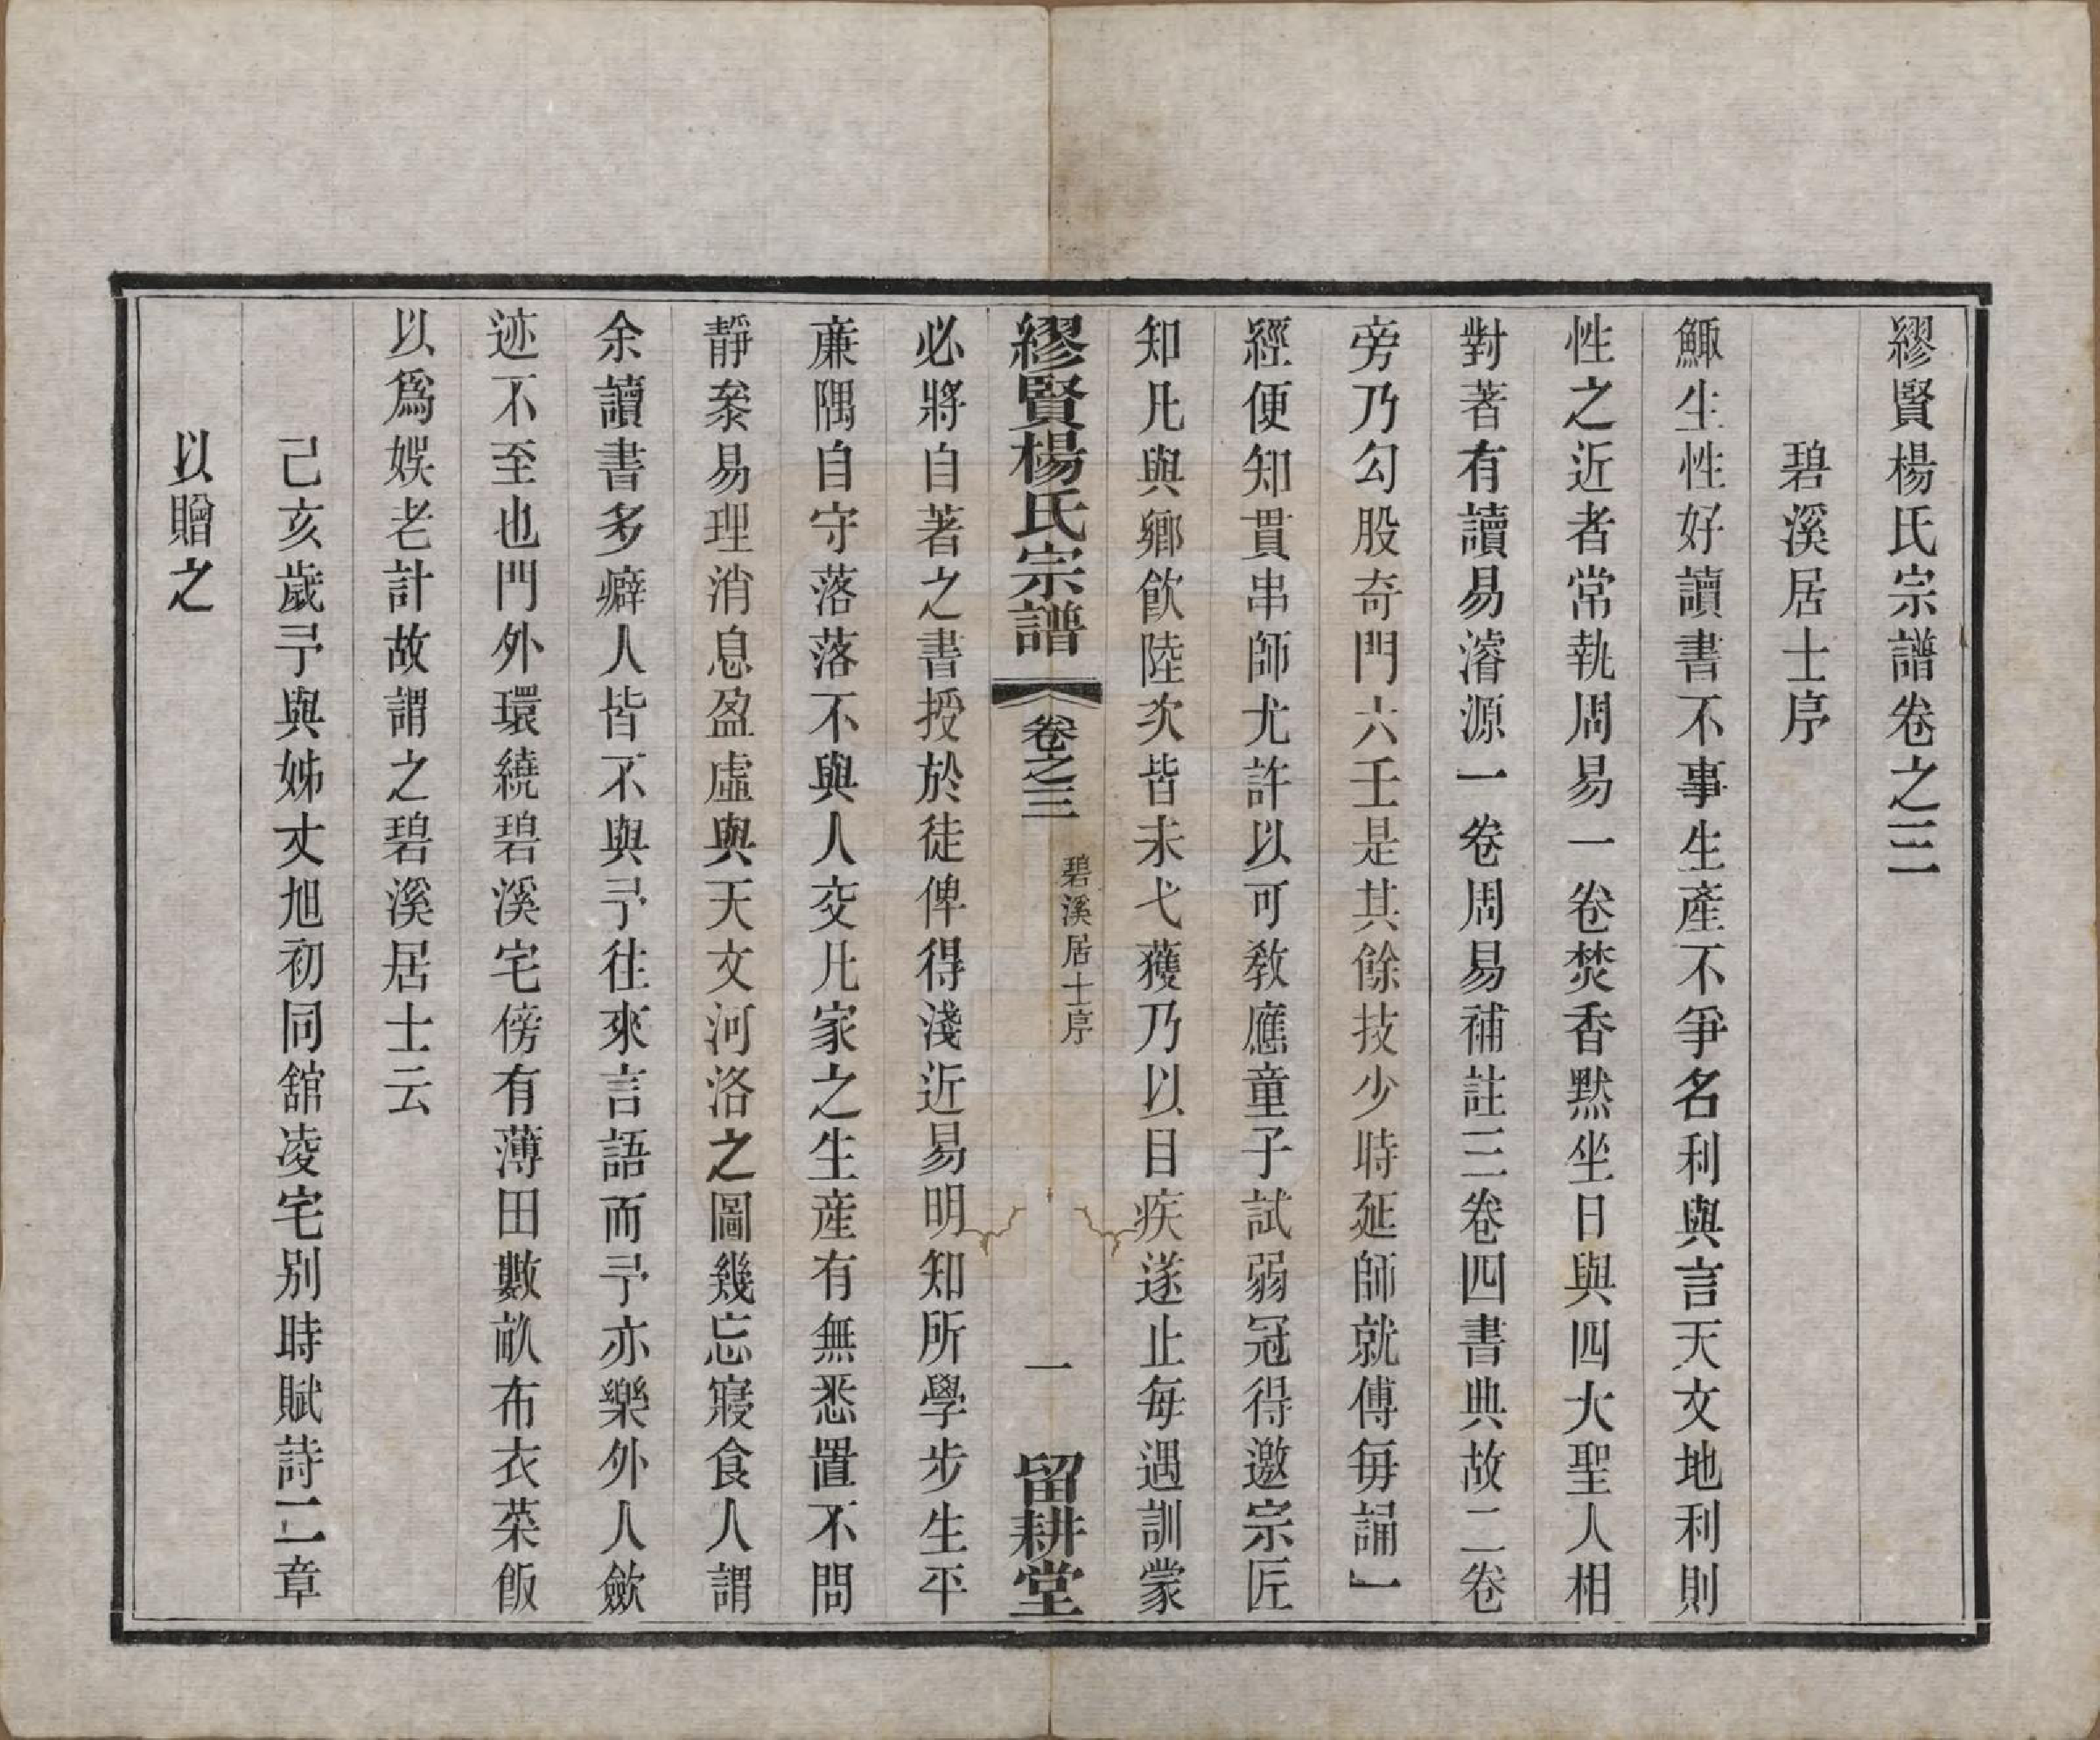 繆賢楊氏宗譜卷之三
碧溪居士序
鯫生性好讀書不事生產不爭名利與言天文地利則
性之近者常執周易一卷焚香默坐日與四大聖人相
對著有讀易濬源一卷周易補註三卷四書典故二卷
旁乃勾股奇門六壬是其餘技少時延師就傅每誦一
經便知貫串師尤許以可敎應童子試弱冠得邀宗匠
知凡與鄉飲陸次皆未弋獲乃以目疾遂止每遇訓蒙
繆賢楊氏宗譜 卷之三 碧溪居士序 一 留耕堂
必將自著之書授於徒俾得淺近易明知所學步生平
廉隅自守落落不與人交凡家之生產有無悉置不問
靜叅易理消息盈虛與天文河洛之圖幾忘寢食人謂
余讀書多癖人皆不與予往來言語而予亦樂外人歛
迹不至也門外環繞碧溪宅傍有薄田數畝布衣菜飯
以爲娛老計故謂之碧溪居士云
己亥歲予與姊丈旭初同舘凌宅別時賦詩二章
以贈之